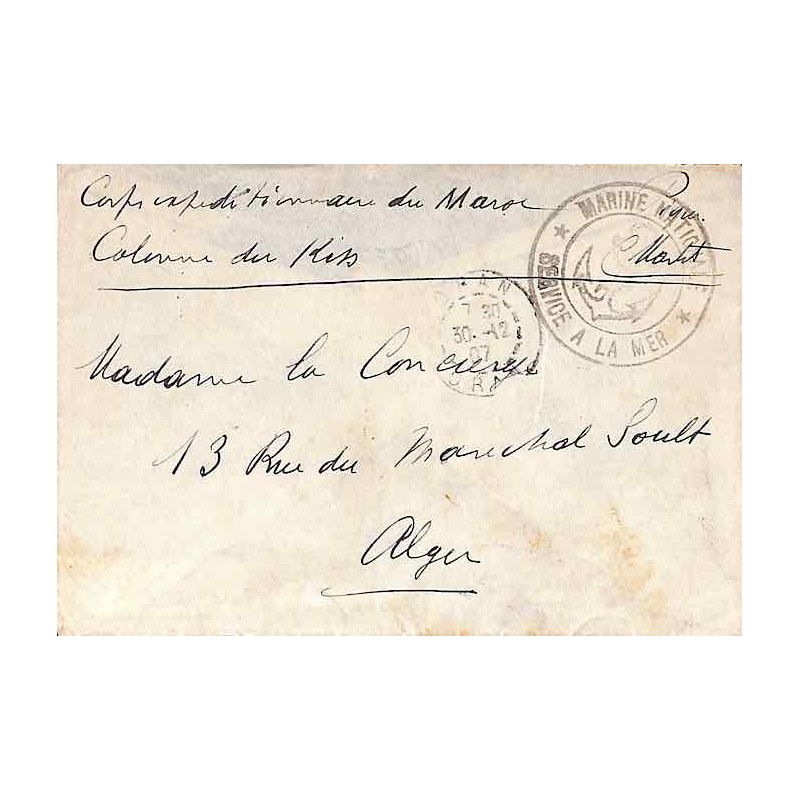 Corps expeditionnaire du Maroc
Colonne du Kiss
MARINE NATIONALE
★ SERVICE A LA MER ★
ORAN
7 30
30 -12
07
ORAN
Madame la Concierge
13 Rue du Marechal Soult
Alger